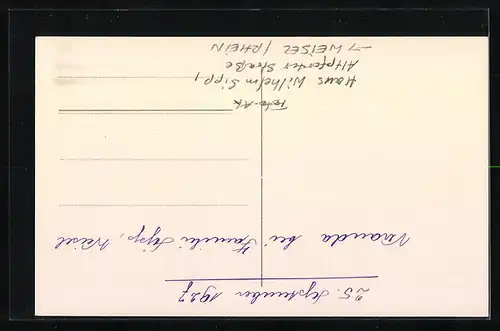 25. September 1927
Wanda bei Familie Sipp, Weisel
Foto-AK
Haus Wilhelm Sipp,
Altpforter Straße
→ WEISEL / RHEIN